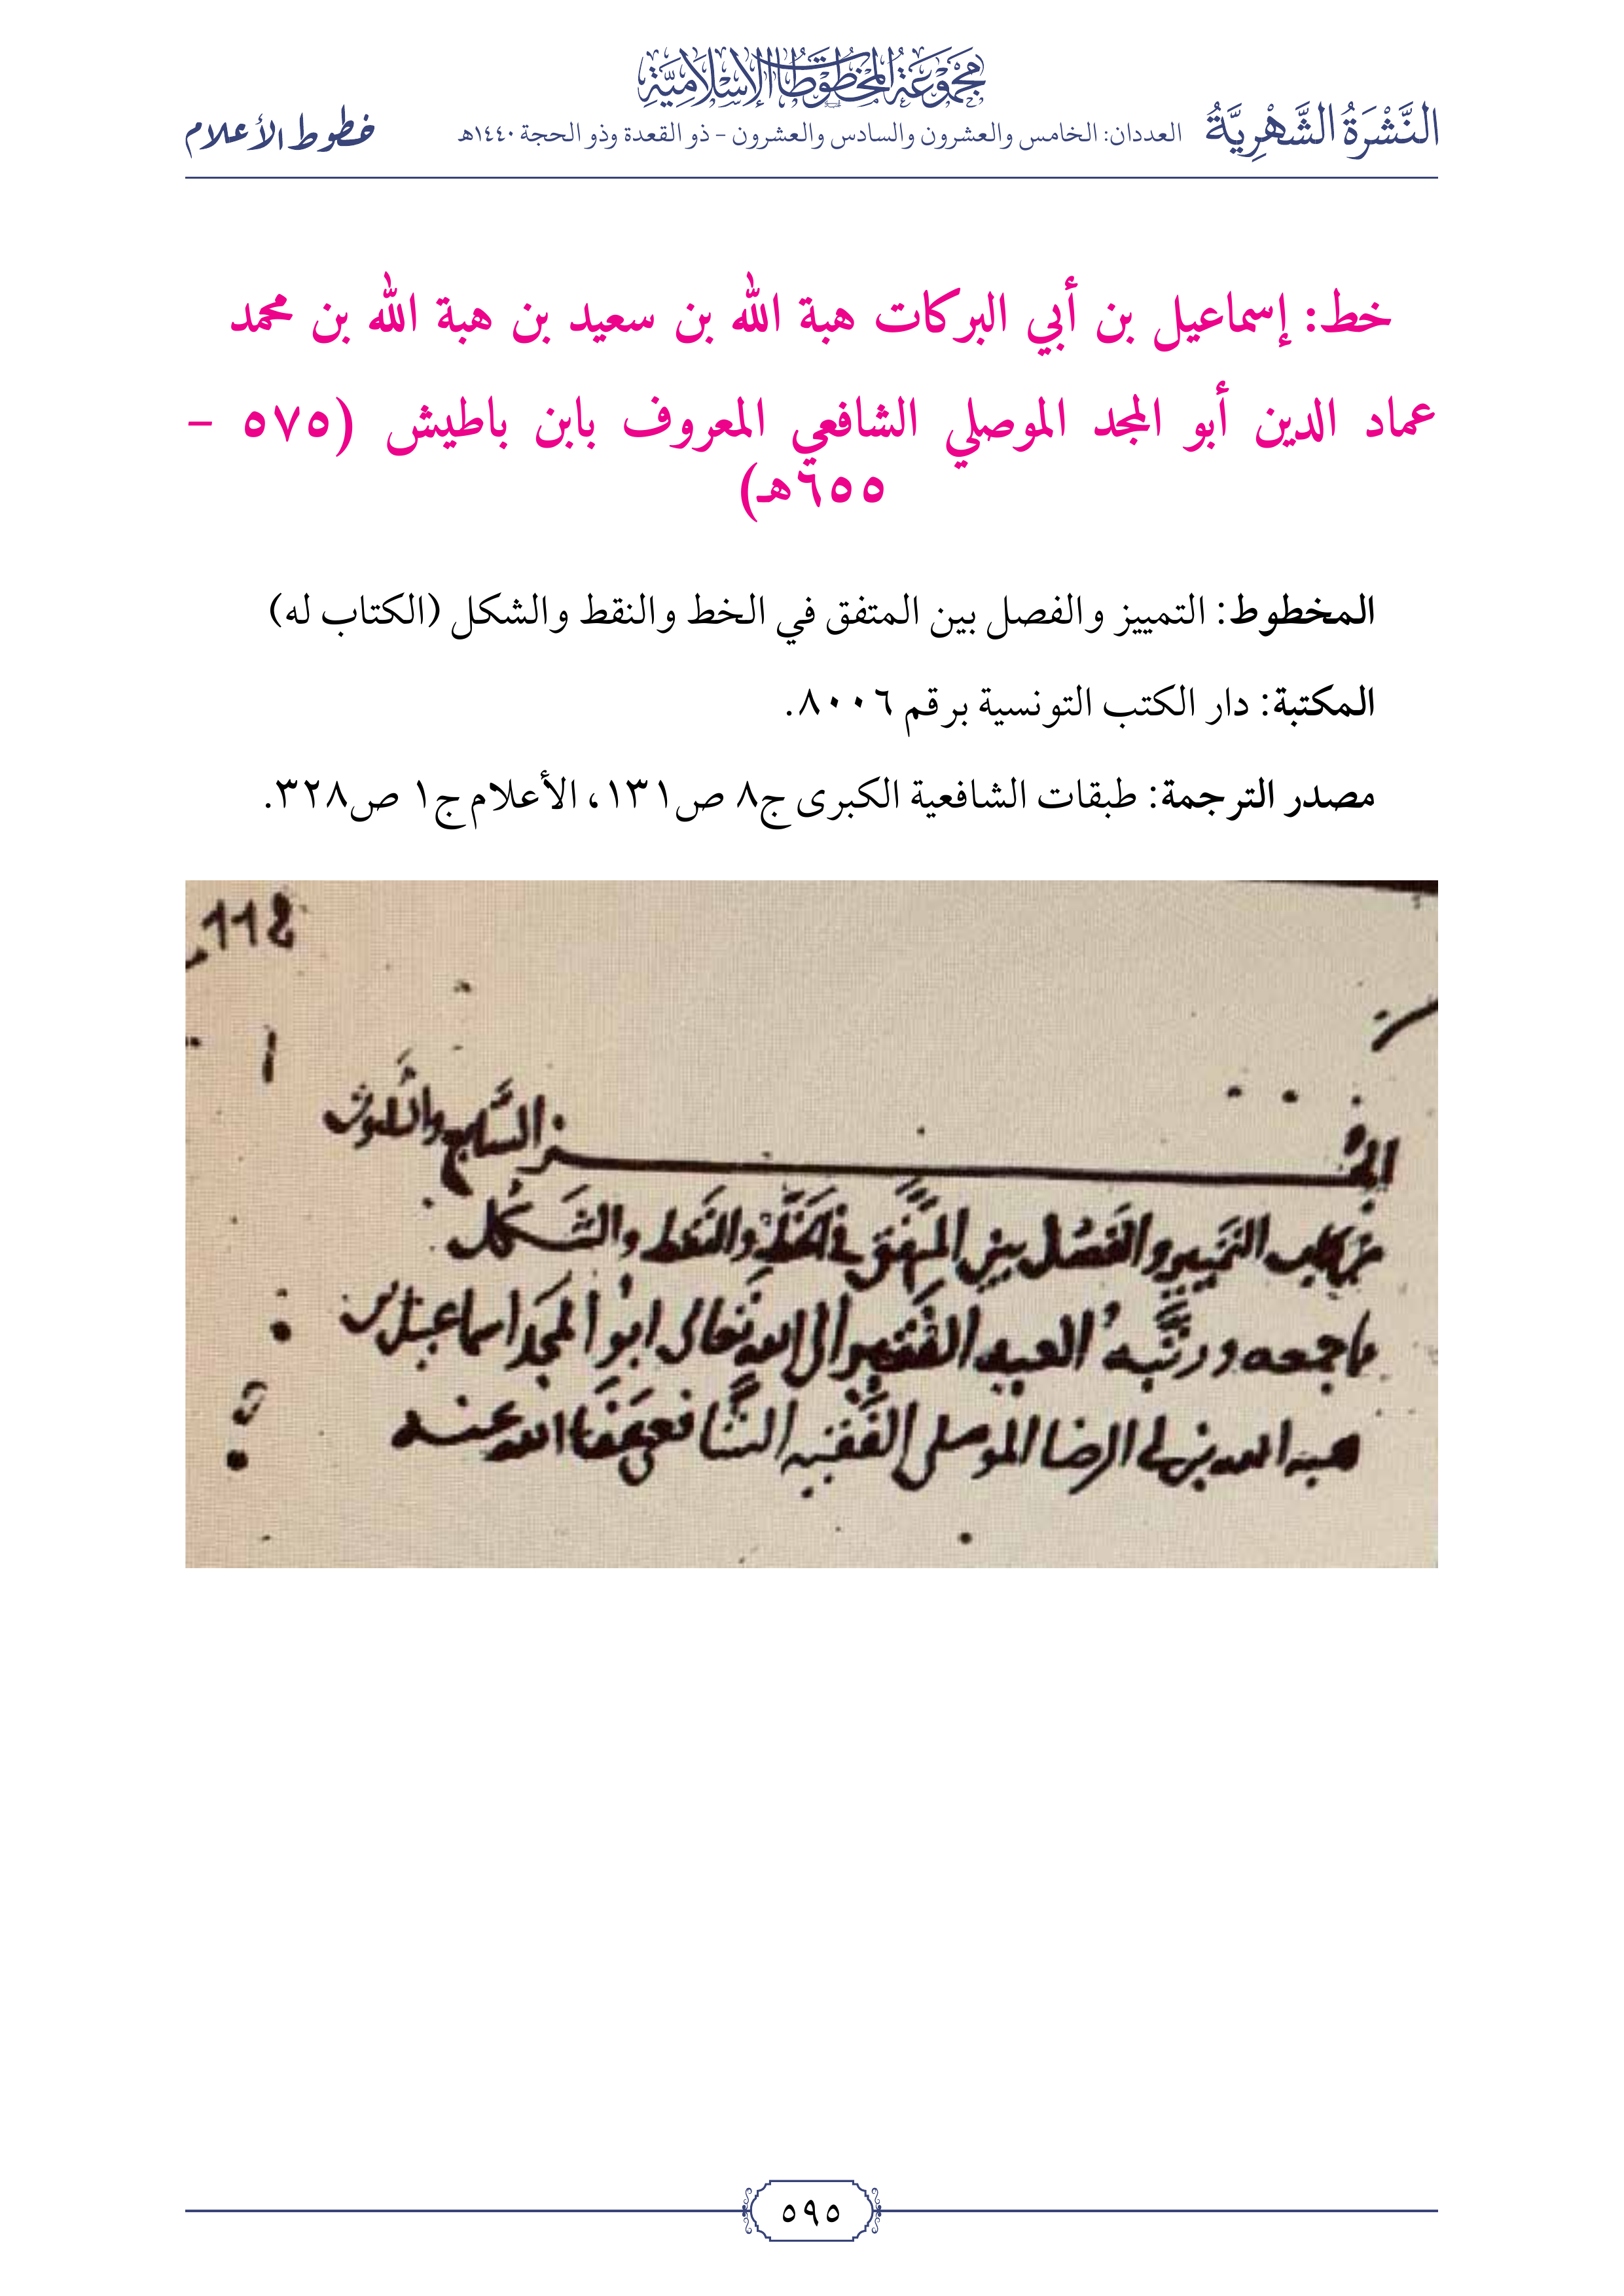 مجموعة المخطوطات الإسلامية
النَّشْرَةُ الشَّهْرِيَّةُ العددان: الخامس والعشرون والسادس والعشرون - ذو القعدة وذو الحجة ١٤٤٠هـ خطوط الأعلام
خط: إسماعيل بن أبي البركات هبة الله بن سعيد بن هبة الله بن محمد
عماد الدين أبو المجد الموصلي الشافعي المعروف بابن باطيش (٥٧٥ -
٦٥٥هـ)
المخطوط: التمييز والفصل بين المتفق في الخط والنقط والشكل (الكتاب له)
المكتبة: دار الكتب التونسية برقم ٨٠٠٦.
مصدر الترجمة: طبقات الشافعية الكبرى ج٨ ص١٣١، الأعلام ج١ ص٣٢٨.
الجز السَّابع والثلاثون
من كتاب التمييز والفَصْل بين المتَّفق في الخَطّ والنقَط والشَكل
ما جمعه ورتَّبه العبد الفَقير الى الله تعالى ابو المجد اسماعيل بن
هبه الله بن ابي الرضا الموصلى الفَقيه الشافعي عَفَا الله عنه
٥٩٥